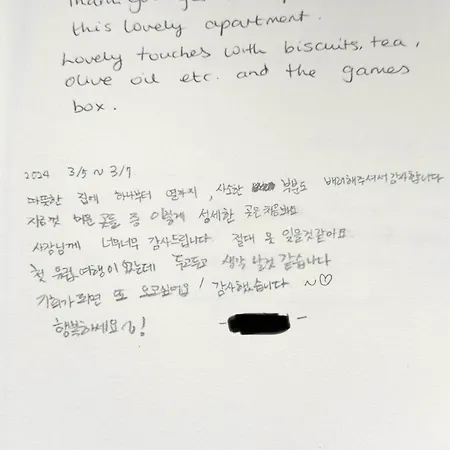 this lovely apartment.
Lovely touches with biscuits, tea,
olive oil etc. and the games
box.
2024 3/5 ~ 3/7
따뜻한 집에 하나부터 열까지, 사소한 부분도 배려해주셔서 감사합니다
지금껏 곳들 중 이렇게 섬세한 곳은 처음봐요
사장님께 너무너무 감사드립니다 절대 못 잊을것같아요
첫 유럽여행이었는데 두고두고 생각 날것 같습니다
기회가 되면 또 오고싶어요! 감사했습니다 ~♡
행복하세요~!